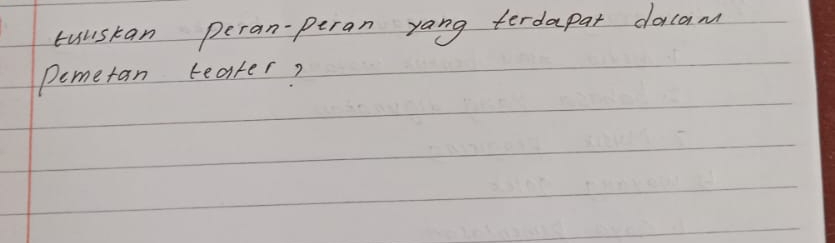 tuuskan peran-peran yang terdapat dalam
Pemetan teater?